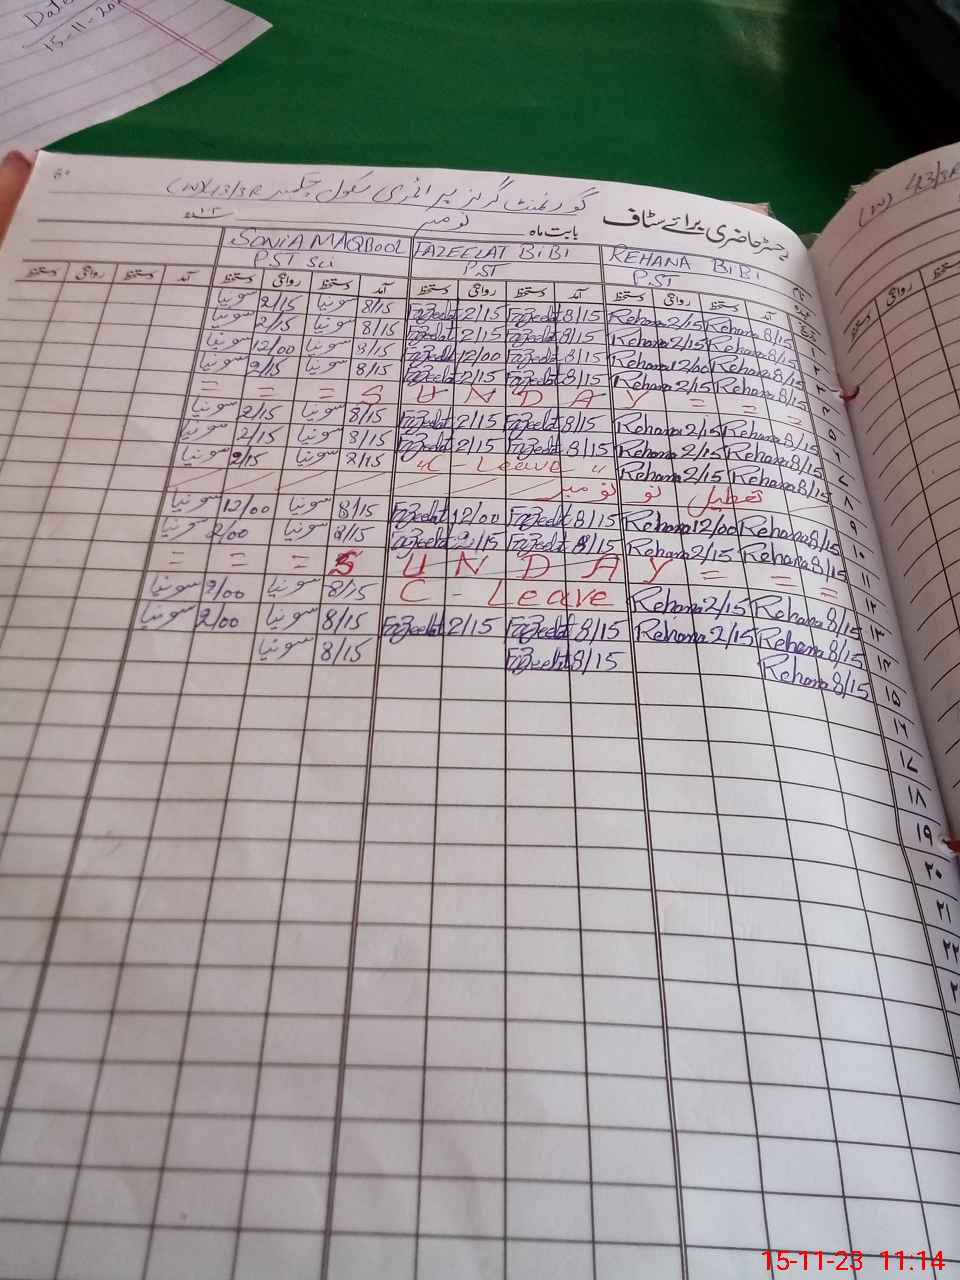 Date
15-11-20
رجسٹر حاضری برائے سٹاف
گورنمنٹ گرلز پرائمری سکول چک نمبر 43/3R (W)
بابت ماہ نومبر
REHANA BiBi FAZEELAT BiBi SONiA MAQBOOL
PST PST PST
آمد دستخط روانگی دستخط آمد دستخط روانگی دستخط آمد دستخط روانگی دستخط
۱ 8/15 Rehana 2/15 Rehana 8/15 Fazeelat 2/15 Fazeelat 8/15 سونیا 2/15 سونیا
۲ 8/15 Rehana 2/15 Rehana 8/15 Fazeelat 2/15 Fazeelat 8/15 سونیا 2/15 سونیا
۳ 8/15 Rehana 12/00 Rehana 8/15 Fazeelat 12/00 Fazeelat 8/15 سونیا 12/00 سونیا
۴ 8/15 Rehana 2/15 Rehana 8/15 Fazeelat 2/15 Fazeelat 8/15 سونیا 2/15 سونیا
۵ = = = S U N D A Y = = =
۶ 8/15 Rehana 2/15 Rehana 8/15 Fazeelat 2/15 Fazeelat 8/15 سونیا 2/15 سونیا
۷ 8/15 Rehana 2/15 Rehana 8/15 Fazeelat 2/15 Fazeelat 8/15 سونیا 2/15 سونیا
۸ 8/15 Rehana 2/15 Rehana "C - Leave" 2/15 سونیا 2/15 سونیا
۹ تعطیل نو نومبر
۱۰ 8/15 Rehana 12/00 Rehana 8/15 Fazeelat 12/00 Fazeelat 8/15 سونیا 12/00 سونیا
۱۱ 8/15 Rehana 2/15 Rehana 8/15 Fazeelat 2/15 Fazeelat 8/15 سونیا 2/00 سونیا
۱۲ = = = S U N D A Y = = =
۱۳ 8/15 Rehana 2/15 Rehana C - Leave 8/15 سونیا 2/00 سونیا
۱۴ 8/15 Rehana 2/15 Rehana 8/15 Fazeelat 2/15 Fazeelat 8/15 سونیا 2/00 سونیا
۱۵ 8/15 Rehana 8/15 Fazeelat 8/15 سونیا
۱۶
۱۷
۱۸
۱۹
۲۰
۲۱
۲۲
(W) 43/3R
دستخط
روانگی
15-11-23 11:14